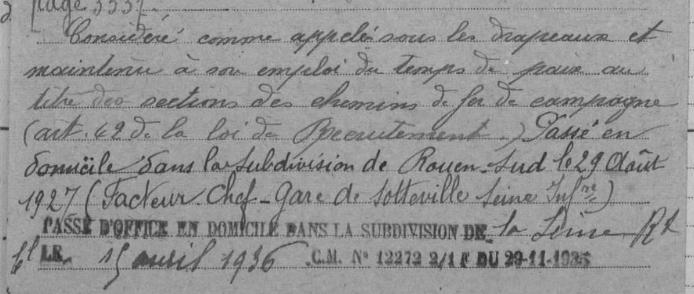 page 3337
Considéré comme appelé sous les drapeaux et
maintenu à son emploi du temps de paix au
titre des sections des chemins de fer de campagne
(art. 42 de la loi de Recrutement.) Passé en
domicile dans la subdivision de Rouen-Sud le 29 Août
1927 (Facteur Chef - Gare de Sotteville Seine Infre)
PASSÉ D'OFFICE EN DOMICILE DANS LA SUBDIVISION DE la Seine
LE 15 avril 1936 C.M. N° 12272 2/1 F DU 29-11-1935